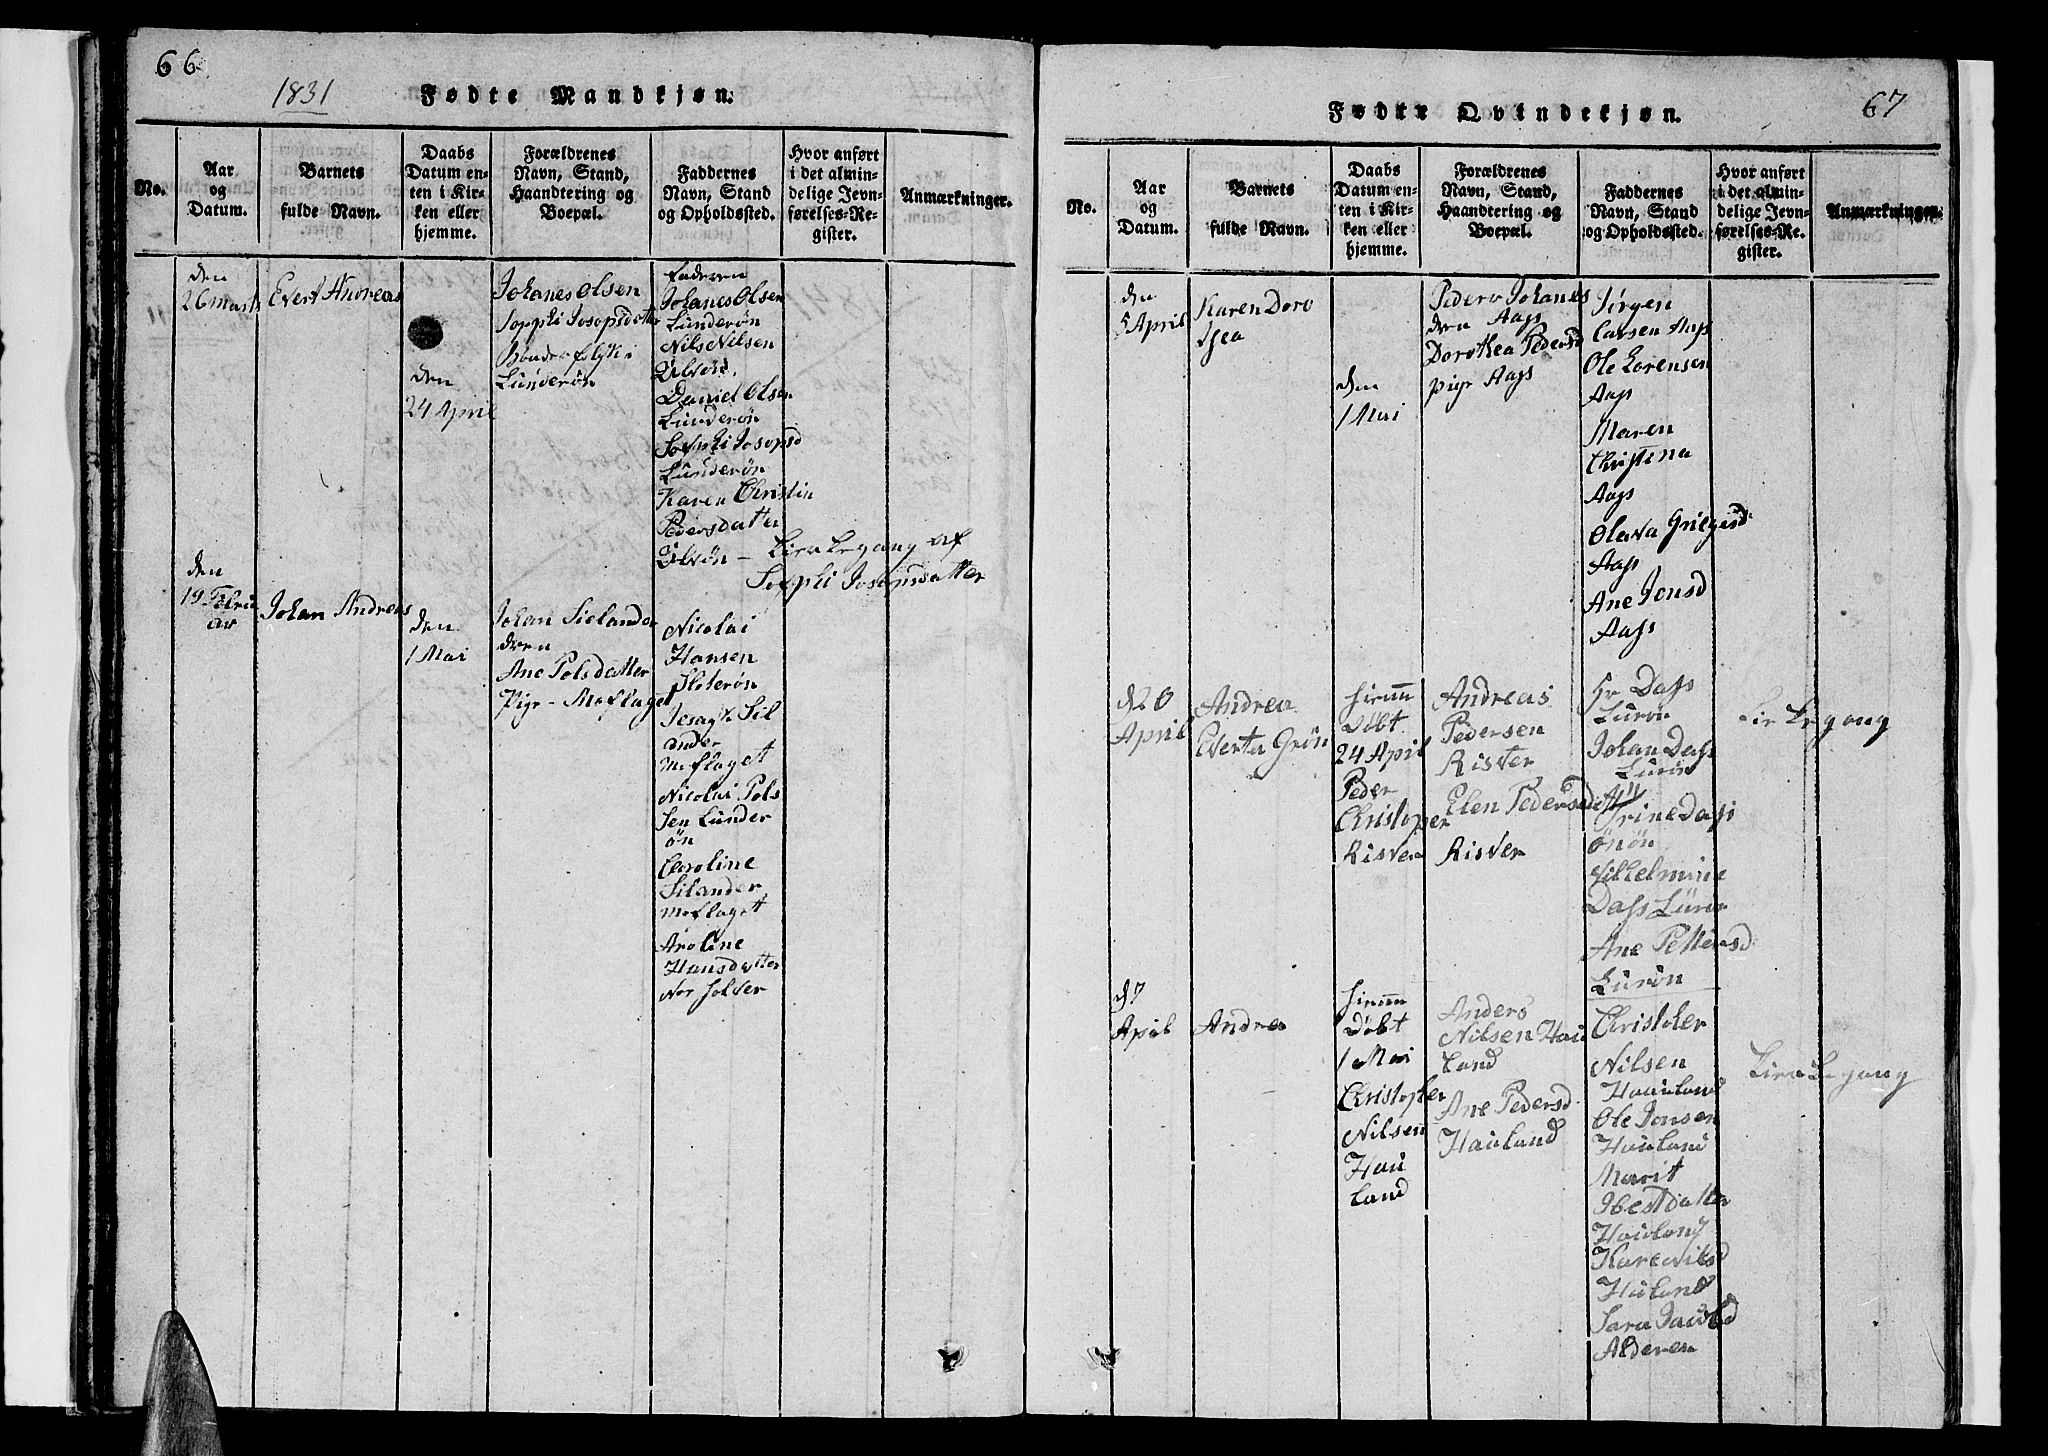 66
1831
Fødte Mandkjøn.
No.
Aar
og
Datum.
Barnets
fulde Navn.
Daabs
Datum en-
ten i Kir-
ken eller
hjemme.
Forældrenes
Navn, Stand,
Haandtering og
Boepæl.
Faddernes
Navn, Stand
og Opholdssted.
Hvor anført
i det almin-
delige Jevn-
førelses-Re-
gister.
Anmærkninger.
den
26 marts
Evert Andreas
den
24 April
Johanes Olsen
Sopphi Josopsdatter
Bønderfolk
Lunderøn
faderen
Johanes Olsen
Lunderøn
Nils Nilsen
Ulvøn
Daniel Olsen
Lunderøn
Sophi Josopsd
Lunderøn
Karen Christin
Pedersdatter
Ulvøn –
Kirkegang af
Sophi Josopsdatter
den
19 Febru
ar
Johan Andreas
den
1 Mai
Johan Sielander
Ane Polsdatter
Pige – Moflaget
Nicolai
Hansen
Sloterøn
Sil
ander
Moflaget
Nicolai Pols
sen Lunder
øn
Caroline
Silander
Moflaget
Aroline
Hansdatter
Nor solver
67
Fødte Qvindekjøn.
No.
Aar
og
Datum.
Barnets
fulde Navn.
Daabs
Datum en-
ten i Kir-
ken eller
hjemme.
Forældrenes
Navn, Stand,
Haandtering og
Boepæl.
Faddernes
Navn, Stand
og Opholdssted.
Hvor anført
i det almin-
delige Jevn-
førelses-Re-
gister.
Anmærkninger.
den
5 April
Karen Doro
thea
den
1 Mai
Peder Johanes
sen Aags
Dorothea Pedersd
pige Aags
Jørgen
Larsen Aags
Ole Lorensen
Aags
Maren
Christena
Aags
Olava
Aags
Ane Jonsd
Aags
d 20
April
Andrea
Everta Grøn
hiemm
Døbt
24 April
Peder
Christopher
Risver
Andreas
Pedersen
Risver
Elen Pedersdatt
Risver
Hr Dass
Lurøn
Johan Dass
Lurøn
Trine Dass
Ønøn
Vilhelmine
Dass Lurøn
Ane Pettersd
Lurøn
Kirkegang
d 7
April
Andrea
hiemm
Døbt
1 Mai
Christopher
Nilsen
Hau
land
Anders
Nilsen Hau
land
Ane Pedersd
Hauland
Christofer
Nilsen
Hauland
Ole Jonsen
Hauland
Marit
Ibestdatter
Hauland
Hauland
Sara Jacobsd
Alderen
Kirkegang